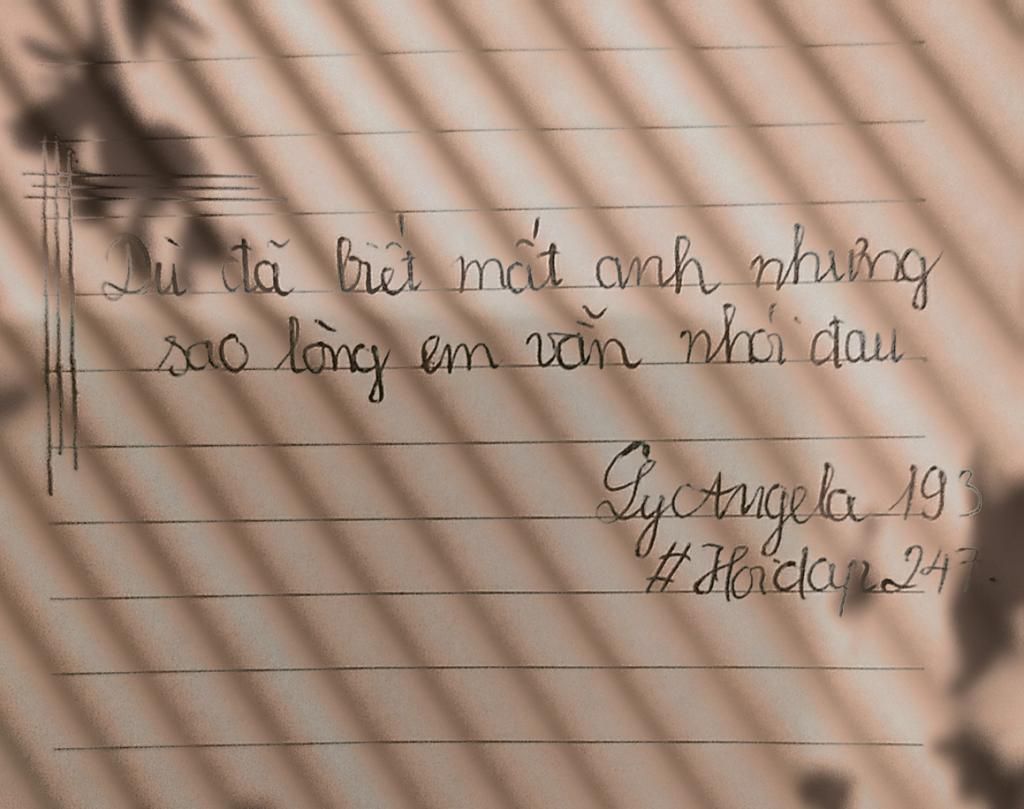 Dù đã biết mất anh nhưng
sao lòng em vẫn nhói đau
LyAngela 193
#Hoidap247.